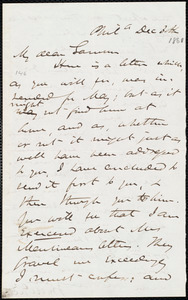 Phila Dec 3d
1860
My dear Garrison
Here is a letter which
as you will see, was in-
tended for May; but as it
might not find him at
home, and as, whether
or not it might just as
well have been addressed
to you, I have concluded to
send it first to you, &
then through you to him.
You will see that I am
exercised about Mrs
letters. They
travel me exceedingly
I must confess; and